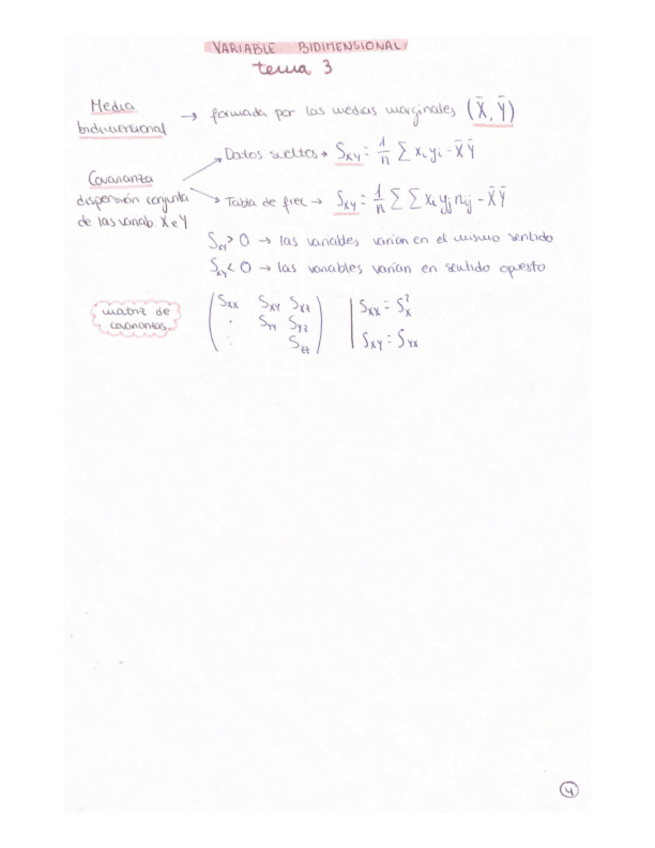 VARIABLE BIDIMENSIONAL
tema 3
Media bidimensional → formada por las medias marginales (X̄, Ȳ)
Covarianza
dispersión conjunta
de las variab. X e Y
Datos sueltos → Sxy = 1/n ∑ xi yi - X̄ Ȳ
Tabla de frec → Sxy = 1/n ∑ ∑ xi yj nij - X̄ Ȳ
Sxy > 0 → las variables varían en el mismo sentido
Sxy < 0 → las variables varían en sentido opuesto
matriz de
covarianzas
Sxx Sxy Sxz
. Syy Syz
: Szz
Sxx = S²x
Sxy = Syx
4